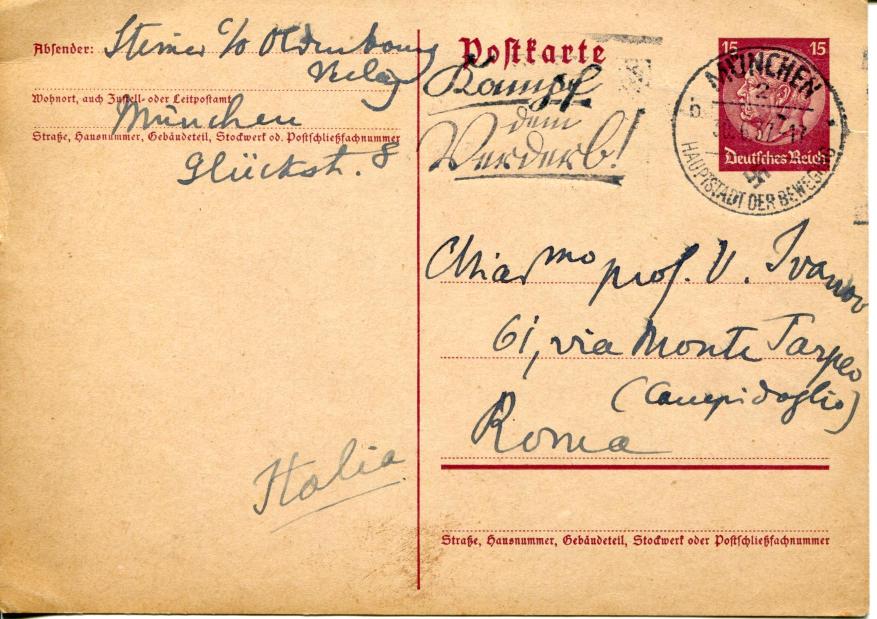 Absender: Steiner c/o Oldenbourg
Verlag
Wohnort, auch Zustell- oder Leitpostamt
München
Straße, Hausnummer, Gebäudeteil, Stockwerk od. Postschließfachnummer
Glückstr. 8
Postkarte
Kampf
dem
Verderb!
15 15
MÜNCHEN
2
b
HAUPTSTADT DER BEWEGUNG
Deutsches Reich
Chiar.mo prof. V. Ivanov
61, via Monte Tarpeo
(Campidoglio)
Roma
Italia
Straße, Hausnummer, Gebäudeteil, Stockwerk oder Postschließfachnummer